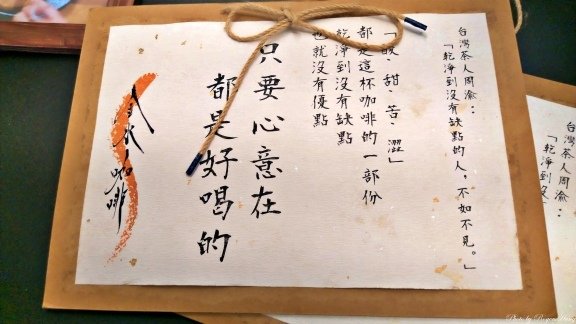 台灣茶人周渝：
「乾淨到沒有缺點的人，不如不見。」
「酸、甜、苦、澀」
都是這杯咖啡的一部份
乾淨到沒有缺點
也就沒有優點
只要心意在
都是好喝的
咖啡
台灣茶人周渝：
「乾淨到沒